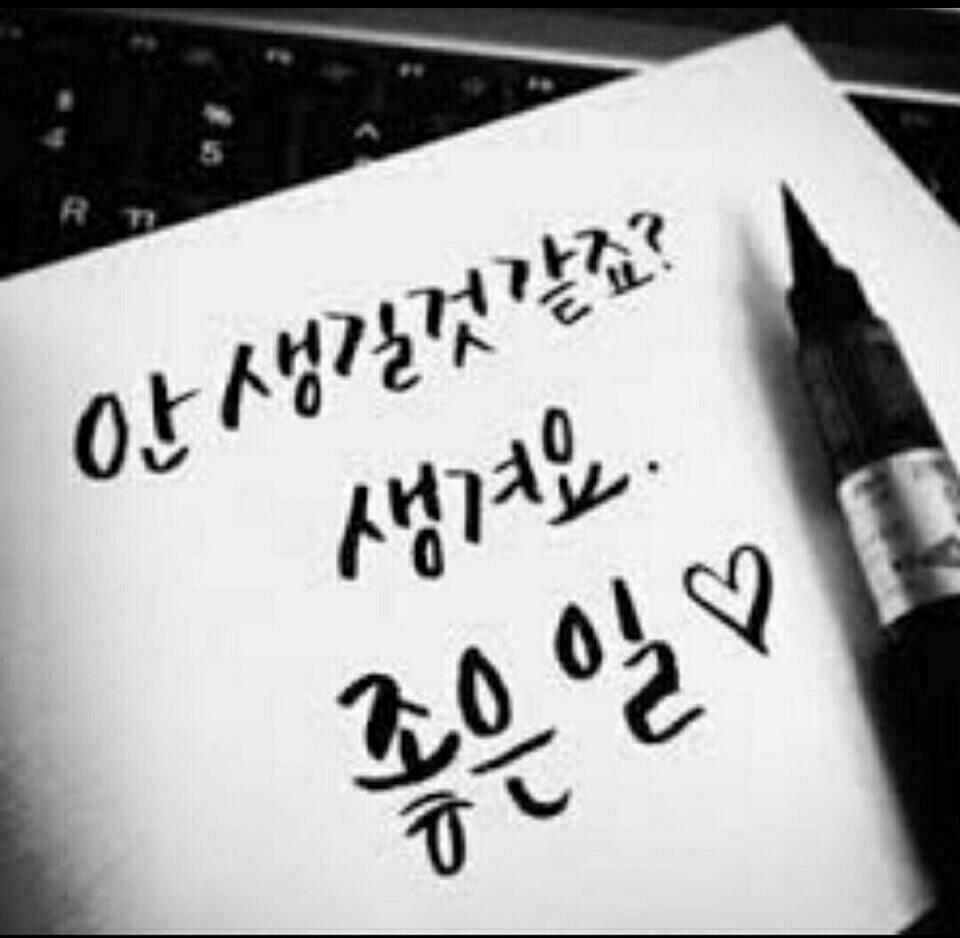 $ % ^
4 5
R ㄲ
안 생길것 같죠?
생겨요.
좋은 일♡